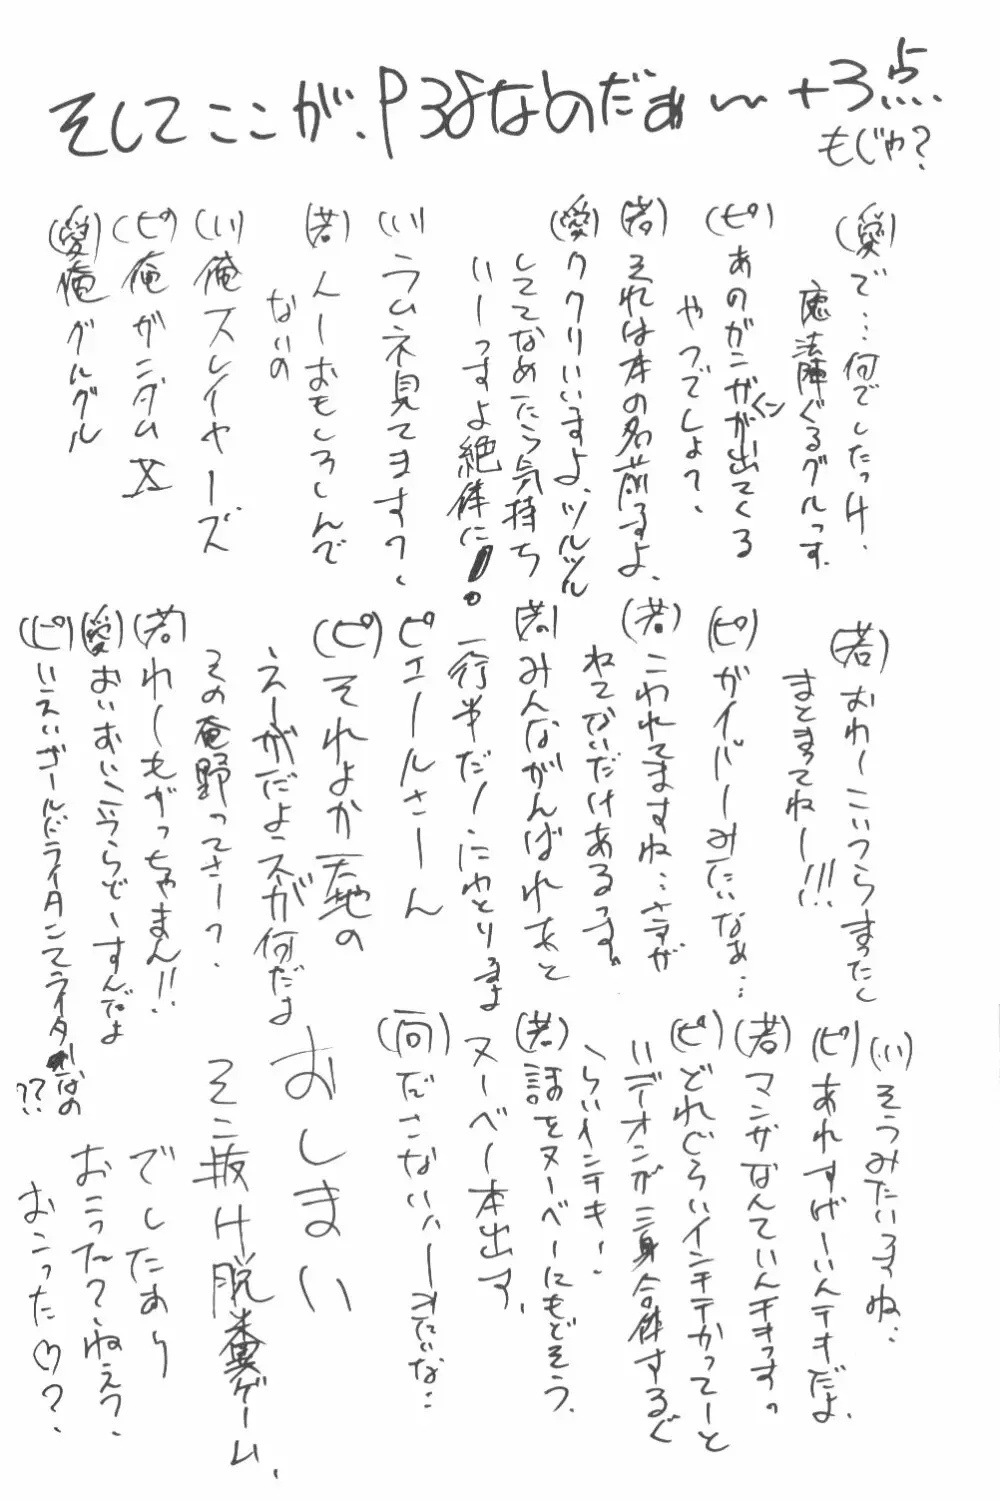 そしてここが、P38なのだぁ〜+3点
もじゃ?
(愛)で…何でしたっけ、
魔法陣ぐるグルっす。
(ピ)あのガニガが出てくる
クン
やつでしょ?、
(岩)それは本の名前るよ、
(愛)ククリいいますよ、ツルツル
しててなめたら気持ち
いーっすよ絶体に!。
(い)ラムネ見てます?、
(若)人ーおもしろしんで
ないの
(い)俺スレイヤーズ
(ピ)俺ガンダムX
(愛)俺グルグル
(若)おわーこいつらまったく
まとまってねー!!!
(ピ)ガイバーみたいなぁ…
(若)こわれてますね…さすが
ねてないだけあるっす。
(若)みんながんばれあと
一行半だ!にわとりるよ
ピエールさーん
(ピ)それよか天地の
えーがだよスが何だよ
その庵野ってさー?
(若)れーもがっちゃまん!!
(愛)おいおいこいつらどーすんだよ
(ピ)いえいゴールドライタンてライターなの
??
(い)そうみたいっすね…
(ピ)あれすげーいんテキだよ、
(若)マンガなんていんテキっす。
(ピ)どれぐらいインチテかってーと
いデオンが三身合体するぐ
らいインテキ!
(若)話をヌーベーにもどそう、
ヌーベー本出す、
(向)ださないハーきたいな…
おしまい
そこ抜け脱糞ゲーム、
でしたあり
おこった?、ねえ?、
おこった♡?、